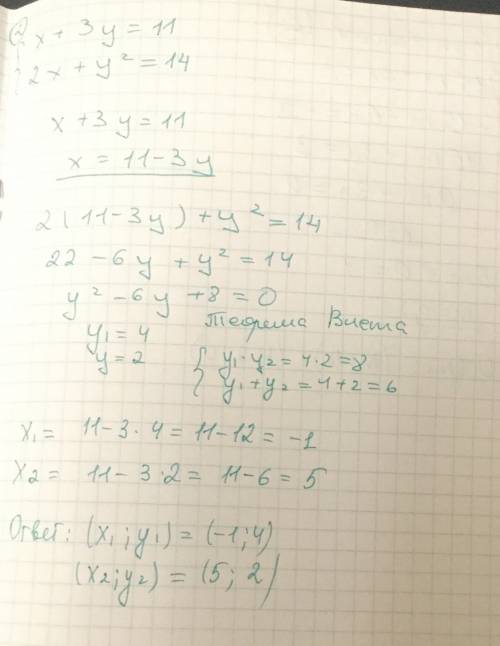 x + 3y = 11
2x + y² = 14
x + 3y = 11
x = 11 - 3y
2(11 - 3y) + y² = 14
22 - 6y + y² = 14
y² - 6y + 8 = 0
Теорема Виета
y₁ = 4
y = 2
{ y₁ · y₂ = 4 · 2 = 8
y₁ + y₂ = 4 + 2 = 6
x₁ = 11 - 3 · 4 = 11 - 12 = -1
x₂ = 11 - 3 · 2 = 11 - 6 = 5
Ответ: (x₁; y₁) = (-1; 4)
(x₂; y₂) = (5; 2)